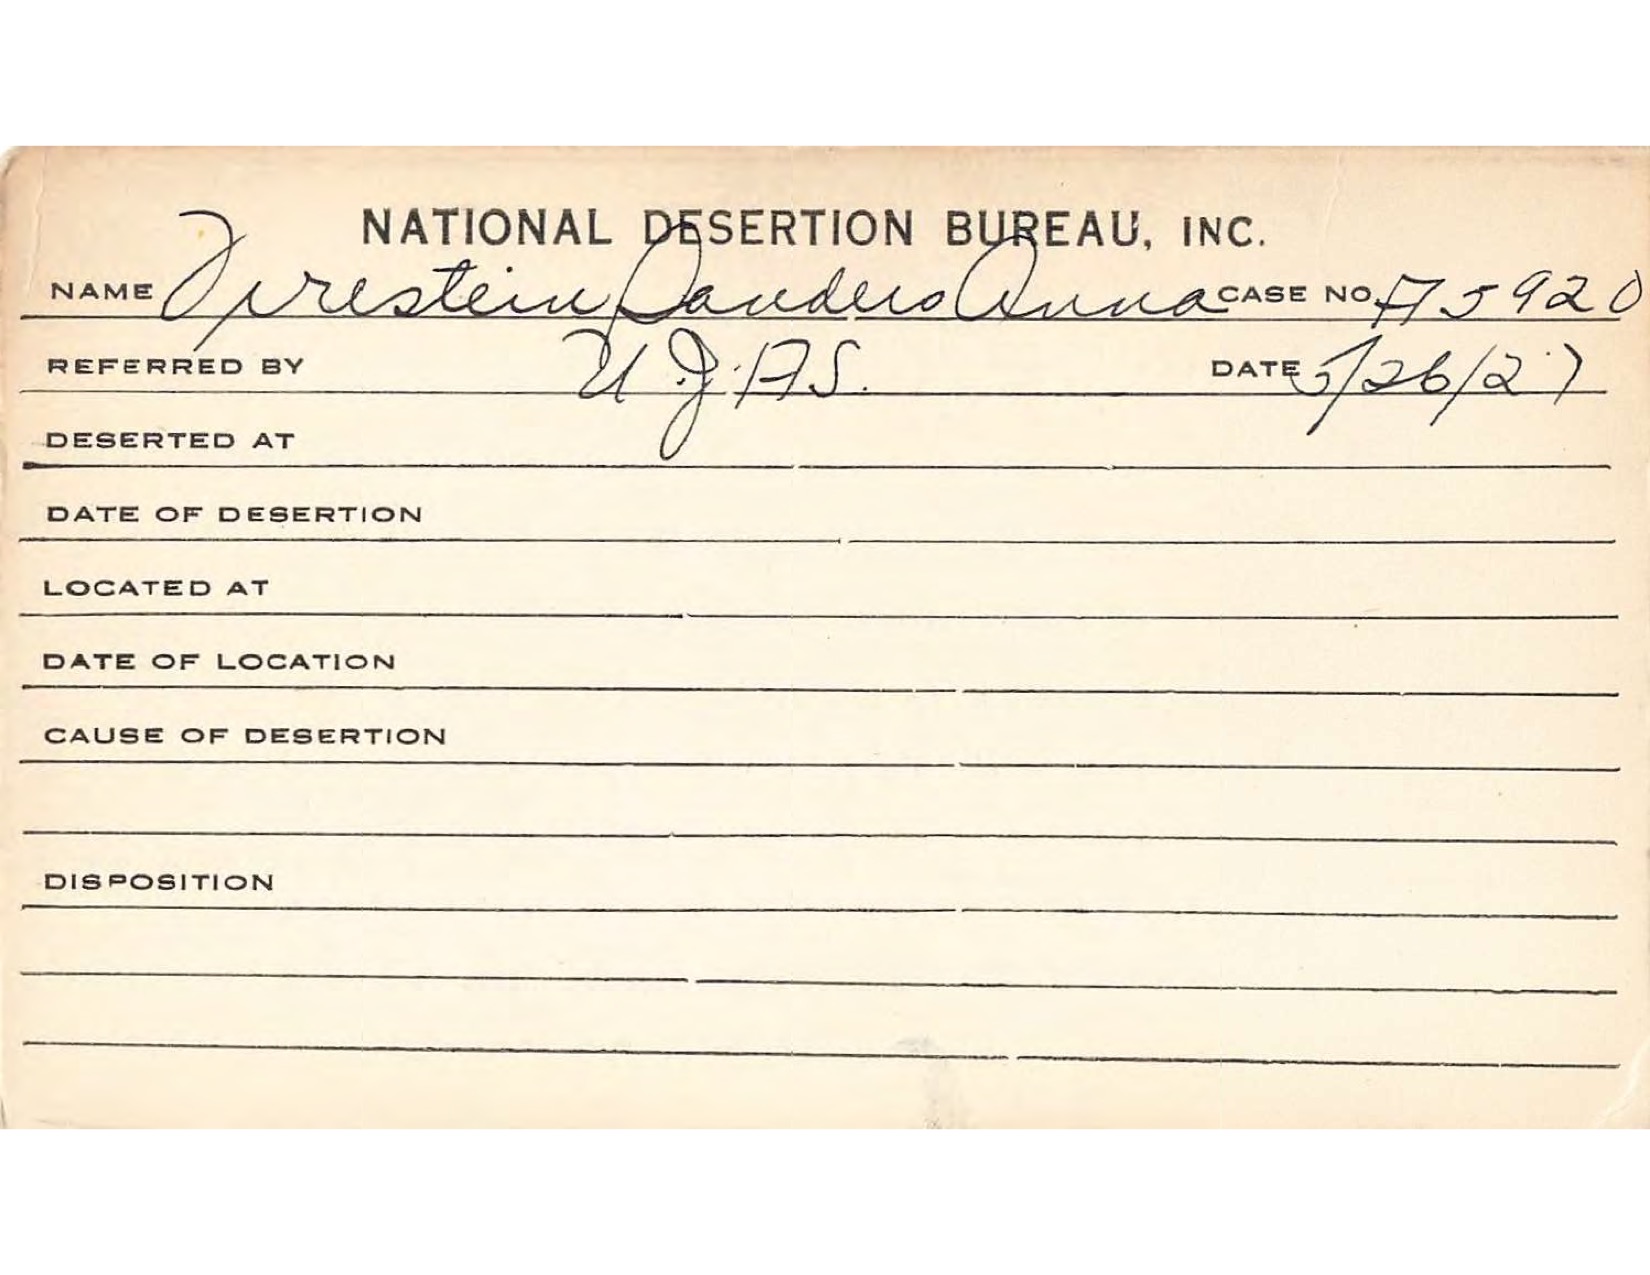 NATIONAL DESERTION BUREAU, INC.
NAME Firestein Sanders Anna CASE NO. A5920
REFERRED BY U.J.A.S. DATE 5/26/27
DESERTED AT
DATE OF DESERTION
LOCATED AT
DATE OF LOCATION
CAUSE OF DESERTION
DISPOSITION